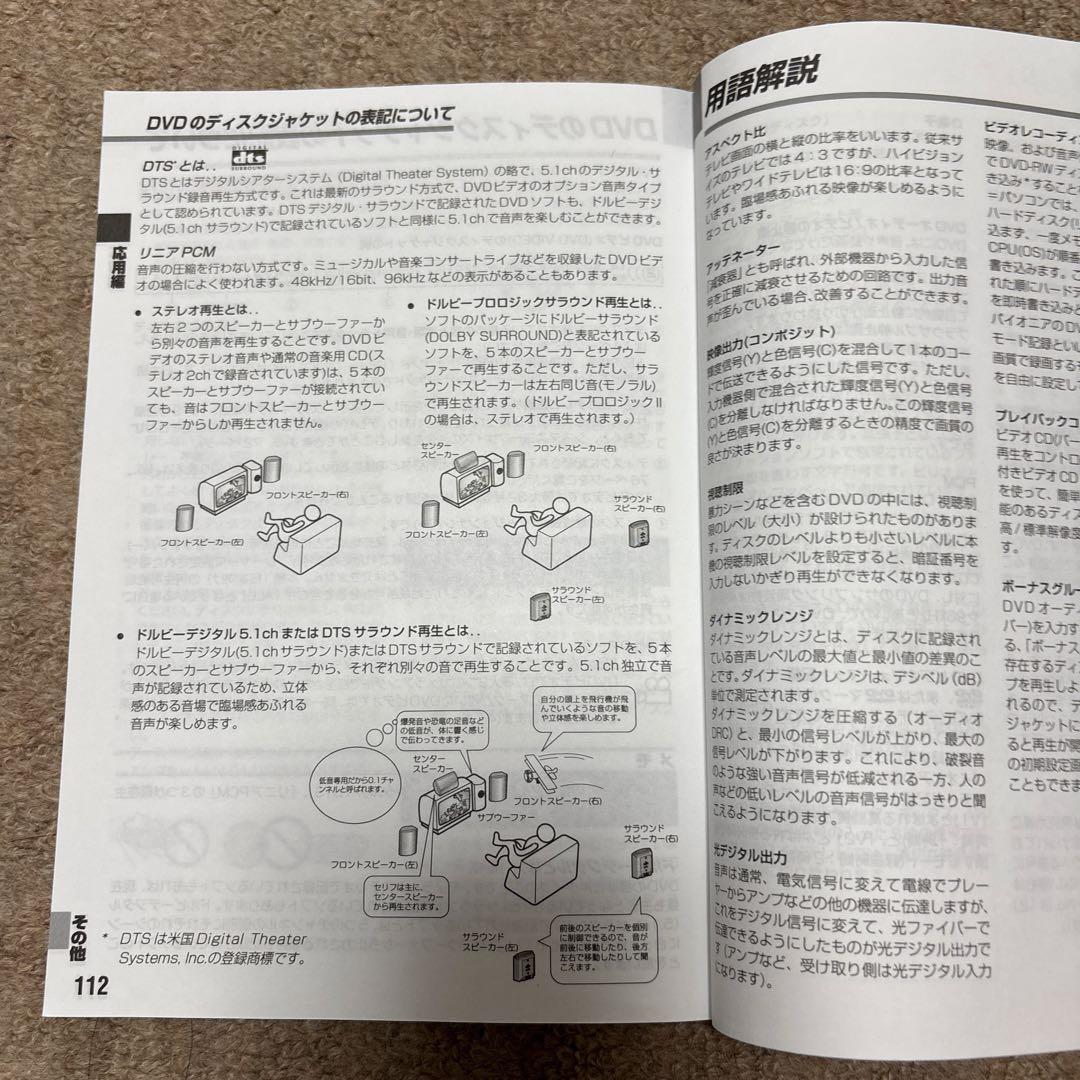 DVDのディスクジャケットの表記について
DTS*とは..
DIGITAL
dts
SURROUND
DTSとはデジタルシアターシステム（Digital Theater System）の略で、5.1chのデジタル・サ
ラウンド録音再生方式です。これは最新のサラウンド方式で、DVDビデオのオプション音声タイプ
として認められています。DTSデジタル・サラウンドで記録されたDVDソフトも、ドルビーデジ
タル(5.1ch サラウンド)で記録されているソフトと同様に5.1chで音声を楽しむことができます。
応用編
リニアPCM
音声の圧縮を行わない方式です。ミュージカルや音楽コンサートライブなどを収録したDVDビデ
オの場合によく使われます。48kHz/16bit、96kHzなどの表示があることもあります。
● ステレオ再生とは..
左右2つのスピーカーとサブウーファーか
ら別々の音を再生することです。DVDビ
デオのステレオ音声や通常の音楽用CD(ス
テレオ2chで録音されています)は、5本の
スピーカーとサブウーファーが接続されてい
ても、音はフロントスピーカーとサブウー
ファーからしか再生されません。
● ドルビープロロジックサラウンド再生とは..
ソフトのパッケージにドルビーサラウンド
(DOLBY SURROUND)と表記されている
ソフトを、5本のスピーカーとサブウー
ファーで再生することです。ただし、サラ
ウンドスピーカーは左右同じ音(モノラル)
で再生されます。（ドルビープロロジックⅡ
の場合は、ステレオで再生されます。）
フロントスピーカー(右)
フロントスピーカー(左)
センター
スピーカー
フロントスピーカー(右)
サラウンド
スピーカー(右)
フロントスピーカー(左)
サラウンド
スピーカー(左)
● ドルビーデジタル5.1chまたはDTSサラウンド再生とは..
ドルビーデジタル(5.1chサラウンド)またはDTSサラウンドで記録されているソフトを、5本
のスピーカーとサブウーファーから、それぞれ別々の音で再生することです。5.1ch独立で音
声が記録されているため、立体
感のある音場で臨場感あふれる
音声が楽しめます。
自分の頭上を飛行機が飛
んでいくような音の移動
や立体感を楽しめます。
爆発音や恐竜の足音など
の低音が、体に響く感じ
で伝わってきます。
センター
スピーカー
低音専用だから0.1チャ
ンネルと呼ばれます。
フロントスピーカー(右)
サブウーファー
サラウンド
スピーカー(右)
フロントスピーカー(左)
セリフは主に、
センタースピーカー
から再生されます。
サラウンド
スピーカー(左)
前後のスピーカーを個別
に制御できるので、音が
前後に移動したり、後方
左右で移動したりして聞
こえます。
その他
* DTSは米国Digital Theater
Systems, Inc.の登録商標です。
112
用語解説
アスペクト比
テレビ画面の横と縦の比率をいいます。従来サ
イズのテレビでは4:3ですが、ハイビジョン
テレビやワイドテレビは16:9の比率となって
います。臨場感あふれる映像が楽しめるように
なっています。
アッテネーター
「減衰器」とも呼ばれ、外部機器から入力した信
号を正確に減衰させるための回路です。出力音
声が歪んでいる場合、改善することができます。
映像出力(コンポジット)
輝度信号(Y)と色信号(C)を混合して1本のコー
ドで伝送できるようにした信号です。ただし、
入力機器側で混合された輝度信号(Y)と色信号
(C)を分離しなければなりません。この輝度信号
(Y)と色信号(C)を分離するときの精度で画質の
良さが決まります。
視聴制限
暴力シーンなどを含むDVDの中には、視聴制
限のレベル（大小）が設けられたものがありま
す。ディスクのレベルよりも小さいレベルに本
機の視聴制限レベルを設定すると、暗証番号を
入力しないかぎり再生ができなくなります。
ダイナミックレンジ
ダイナミックレンジとは、ディスクに記録され
ている音声レベルの最大値と最小値の差異のこ
とです。ダイナミックレンジは、デシベル（dB）
単位で測定されます。
ダイナミックレンジを圧縮する（オーディオ
DRC）と、最小の信号レベルが上がり、最大の
信号レベルが下がります。これにより、破裂音
のような強い音声信号が低減される一方、人の
声などの低いレベルの音声信号がはっきりと聞
こえるようになります。
光デジタル出力
音声は通常、電気信号に変えて電線でプレー
ヤーからアンプなどの他の機器に伝達しますが、
これをデジタル信号に変えて、光ファイバーで
伝達できるようにしたものが光デジタル出力で
す（アンプなど、受け取り側は光デジタル入力
になります）。
ビデオレコーディ
映像、および音声
でDVD-RWディ
き込み*すること
=パソコンでは、
ハードディスク(
込まず、一度メモ
CPU(OS)が順番
書き込みます。こ
れた順にハードデ
を即時書き込み
パイオニアのDV
モード記録といい
画質で録画する
を自由に設定し
プレイバックコ
ビデオCD(バー
再生をコントロ
付きビデオCD
を使って、簡単
能のあるディス
高/標準解像度
す。
ボーナスグルー
DVDオーディ
バー)を入力す
る、「ボーナス
存在するディ
プを再生しよ
れるので、デ
ジャケットに
ると再生が開
の初期設定画
こともできま